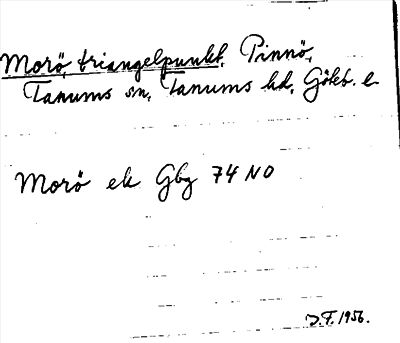 Morö, triangelpunkt, Pinnö,
Tanums sn, Tanums hd, Göteb. l.
Morö ek Gbg 74 NO
J.F. 1956.